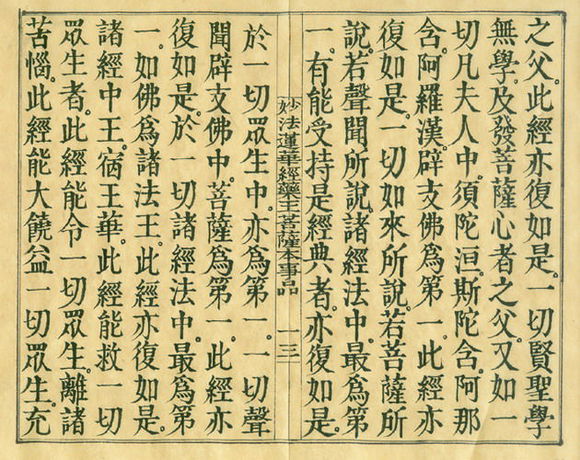 之父。此經亦復如是。一切賢聖學
無學及發菩薩心者之父。又如一
切凡夫人中。須陀洹。斯陀含。阿那
含。阿羅漢。辟支佛爲第一。此經亦
復如是。一切如來所說。若菩薩所
說。若聲聞所說。諸經法中。最爲第
一。有能受持是經典者。亦復如是。
妙法蓮華經藥王菩薩本事品 一三
於一切眾生中。亦爲第一。一切聲
聞辟支佛中。菩薩爲第一。此經亦
復如是。於一切諸經法中。最爲第
一。如佛爲諸法王。此經亦復如是。
諸經中王。宿王華。此經能救一切
眾生者。此經能令一切眾生。離諸
苦惱。此經能大饒益一切眾生。充